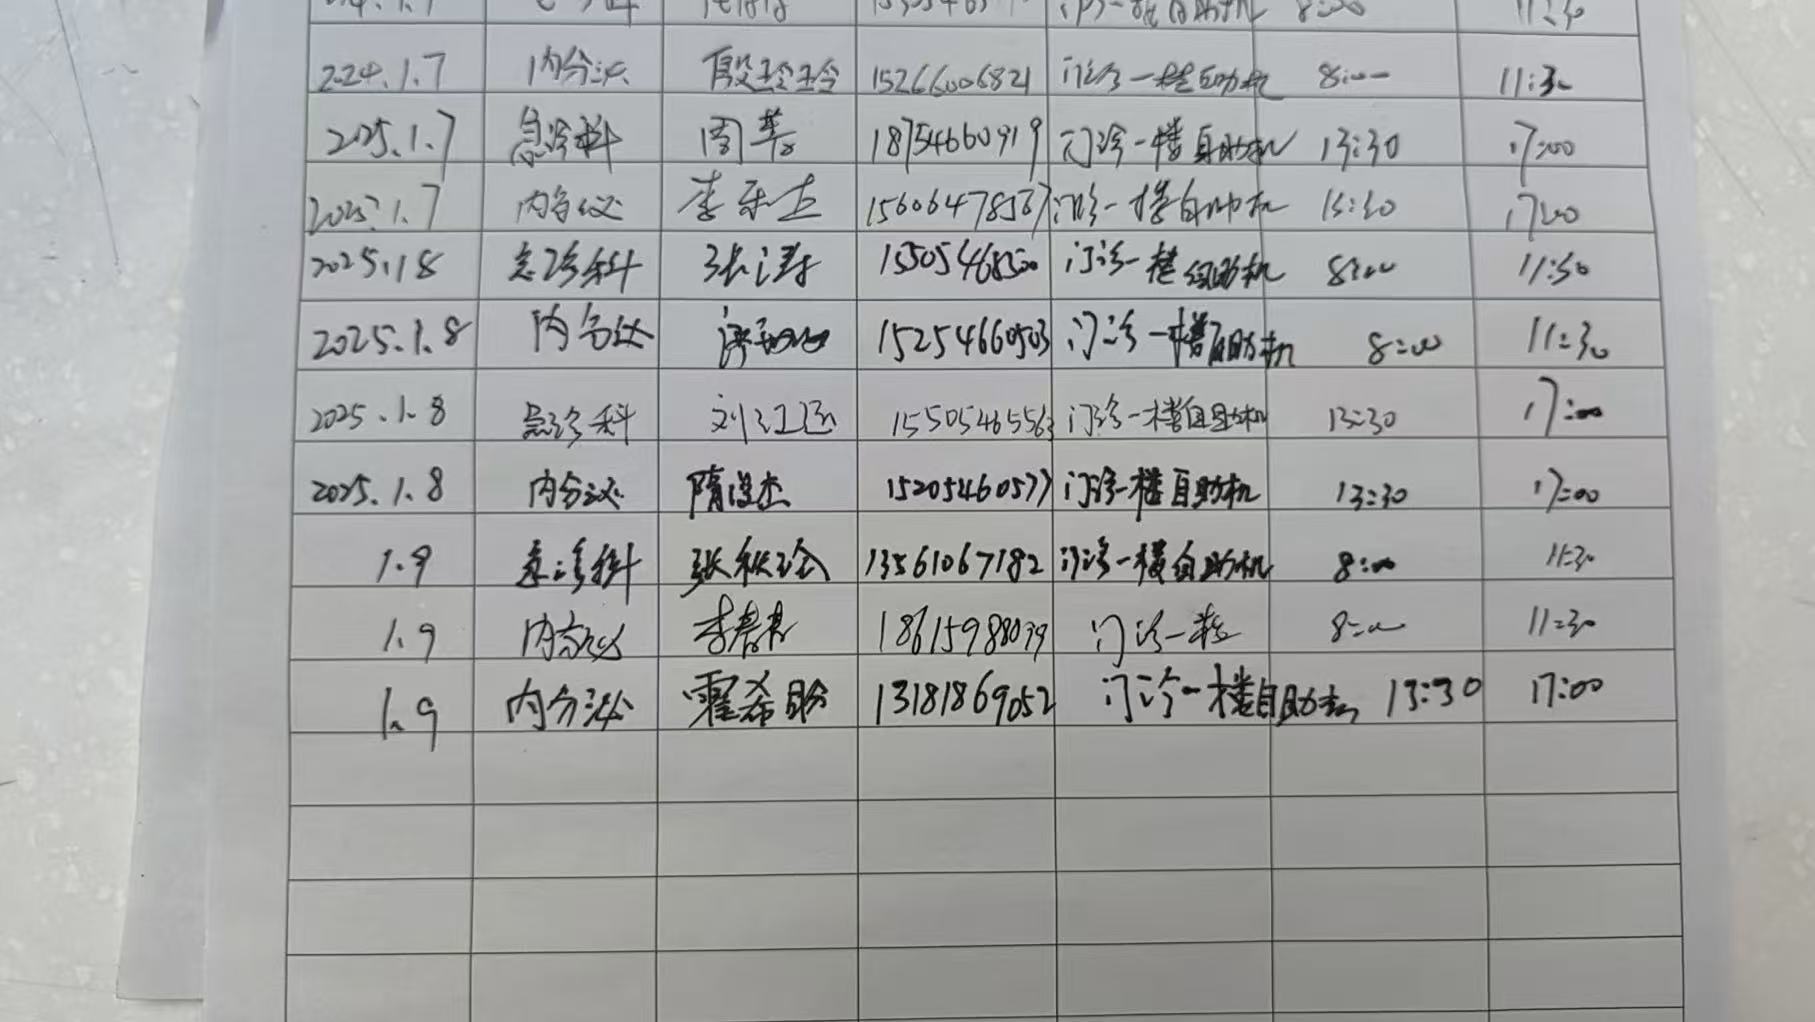 11:30
2024.1.7 内分泌 殷玲玲 15266006821 门诊一楼自助机 8:00 11:30
2025.1.7 急诊科 周苹 18754660919 门诊一楼自助机 13:30 17:00
2025.1.7 内分泌 李乐杰 门诊一楼自助机 13:30 17:00
2025.1.8 急诊科 张涛 15505468500 门诊一楼自助机 8:00 11:30
2025.1.8 内分泌 15254660503 门诊一楼自助机 8:00 11:30
2025.1.8 急诊科 15505465563 门诊一楼自助机 13:30 17:00
2025.1.8 内分泌 隋俊杰 15205460577 门诊一楼自助机 13:30 17:00
1.9 急诊科 张秋玲 13561067182 门诊一楼自助机 8:00 11:30
1.9 内分泌 18615988039 门诊一楼 8:00 11:30
1.9 内分泌 霍希盼 13181869052 门诊一楼自助机 13:30 17:00